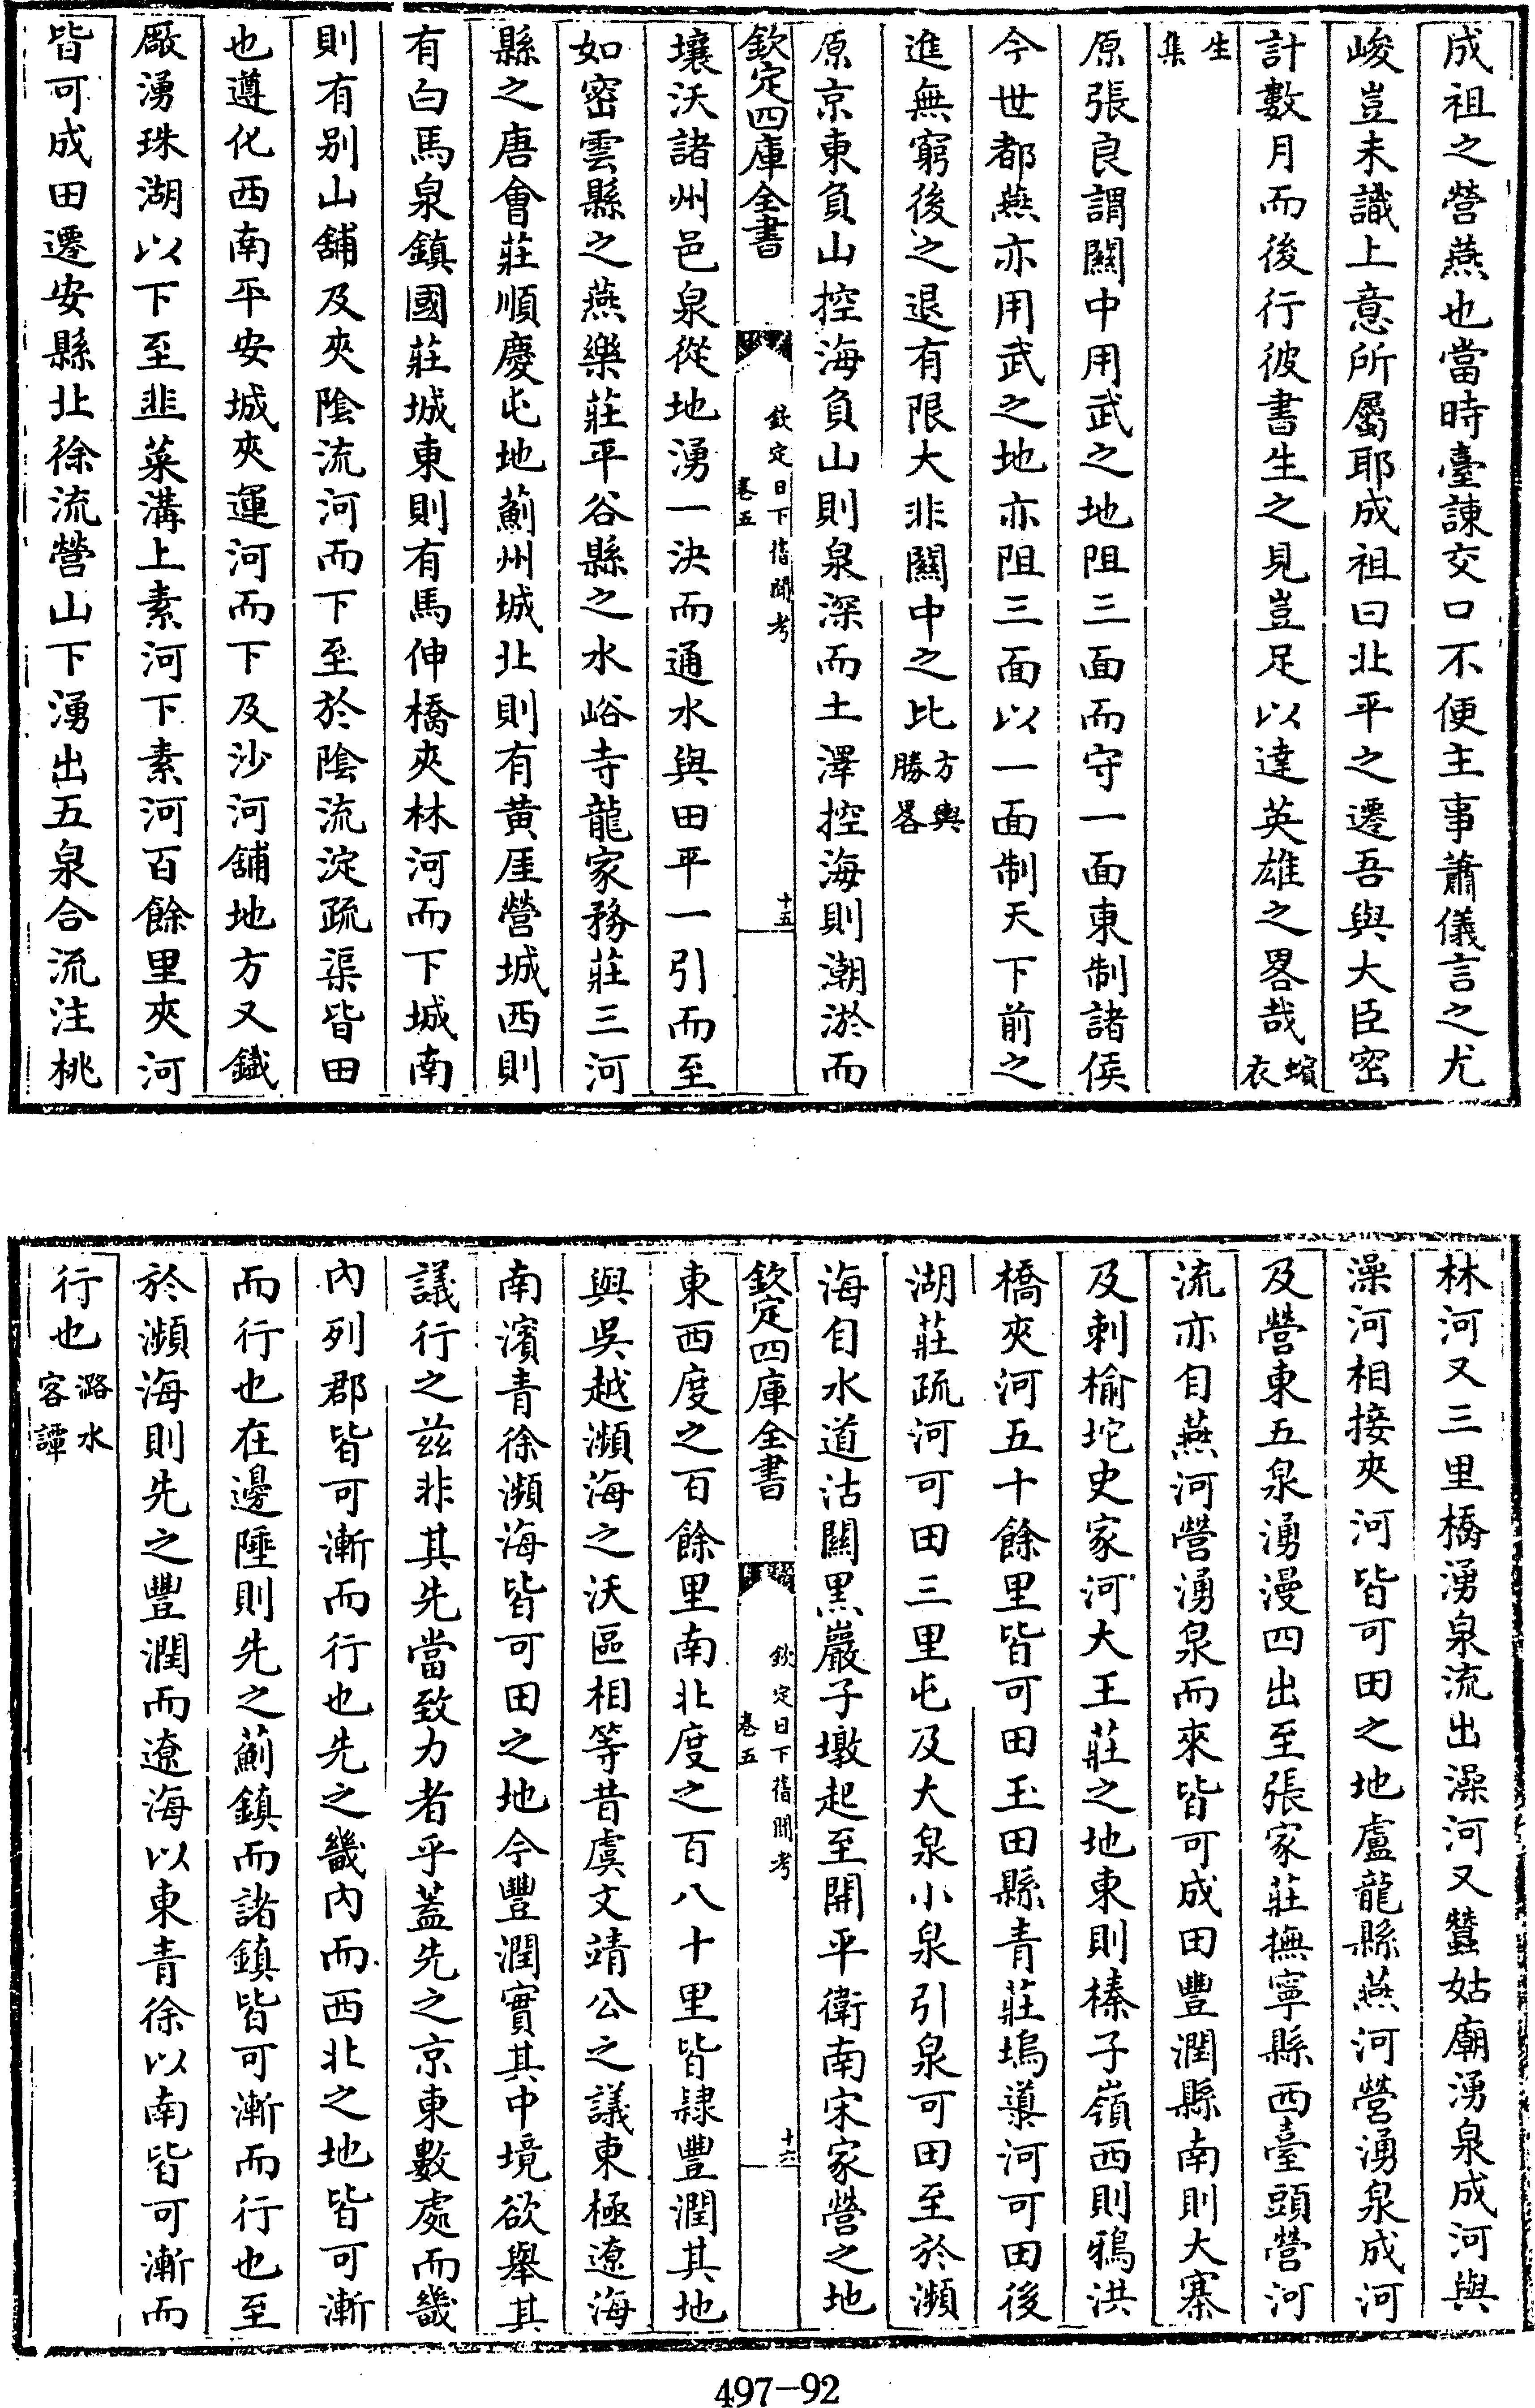 成祖之營燕也當時臺諫交口不便主事蕭儀言之尤
峻豈未識上意所屬耶成祖曰北平之遷吾與大臣密
計數月而後行彼書生之見豈足以達英雄之畧哉蠙衣
生集
原張良謂關中用武之地阻三面而守一面東制諸侯
今世都燕亦用武之地亦阻三面以一面制天下前之
進無窮後之退有限大非關中之比方輿勝畧
原京東負山控海負山則泉深而土澤控海則潮淤而
欽定四庫全書
欽定日下舊聞考
卷五
十五
壤沃諸州邑泉從地湧一決而通水與田平一引而至
如密雲縣之燕樂莊平谷縣之水峪寺龍家務莊三河
縣之唐會莊順慶屯地薊州城北則有黄厓營城西則
有白馬泉鎮國莊城東則有馬伸橋夾林河而下城南
則有别山舖及夾陰流河而下至於陰流淀疏渠皆田
也遵化西南平安城夾運河而下及沙河舖地方又鐵
厰湧珠湖以下至韭菜溝上素河下素河百餘里夾河
皆可成田遷安縣北徐流營山下湧出五泉合流注桃
林河又三里橋湧泉流出澡河又蠶姑廟湧泉成河與
澡河相接夾河皆可田之地盧龍縣燕河營湧泉成河
及營東五泉湧漫四出至張家莊撫寧縣西臺頭營河
流亦自燕河營湧泉而來皆可成田豐潤縣南則大寨
及剌榆坨史家河大王莊之地東則榛子嶺西則鴉洪
橋夾河五十餘里皆可田玉田縣青莊塢導河可田後
湖莊疏河可田三里屯及大泉小泉引泉可田至於瀕
海自水道沽關黑巖子墩起至開平衛南宋家營之地
欽定四庫全書
欽定日下舊聞考
卷五
十六
東西度之百餘里南北度之百八十里皆隷豐潤其地
與吳越瀕海之沃區相等昔虞文靖公之議東極遼海
南濱青徐瀕海皆可田之地今豐潤實其中境欲舉其
議行之兹非其先當致力者乎蓋先之京東數處而畿
内列郡皆可漸而行也先之畿内而西北之地皆可漸
而行也在邊陲則先之薊鎮而諸鎮皆可漸而行也至
於瀕海則先之豐潤而遼海以東青徐以南皆可漸而
行也潞水客譚
497-92